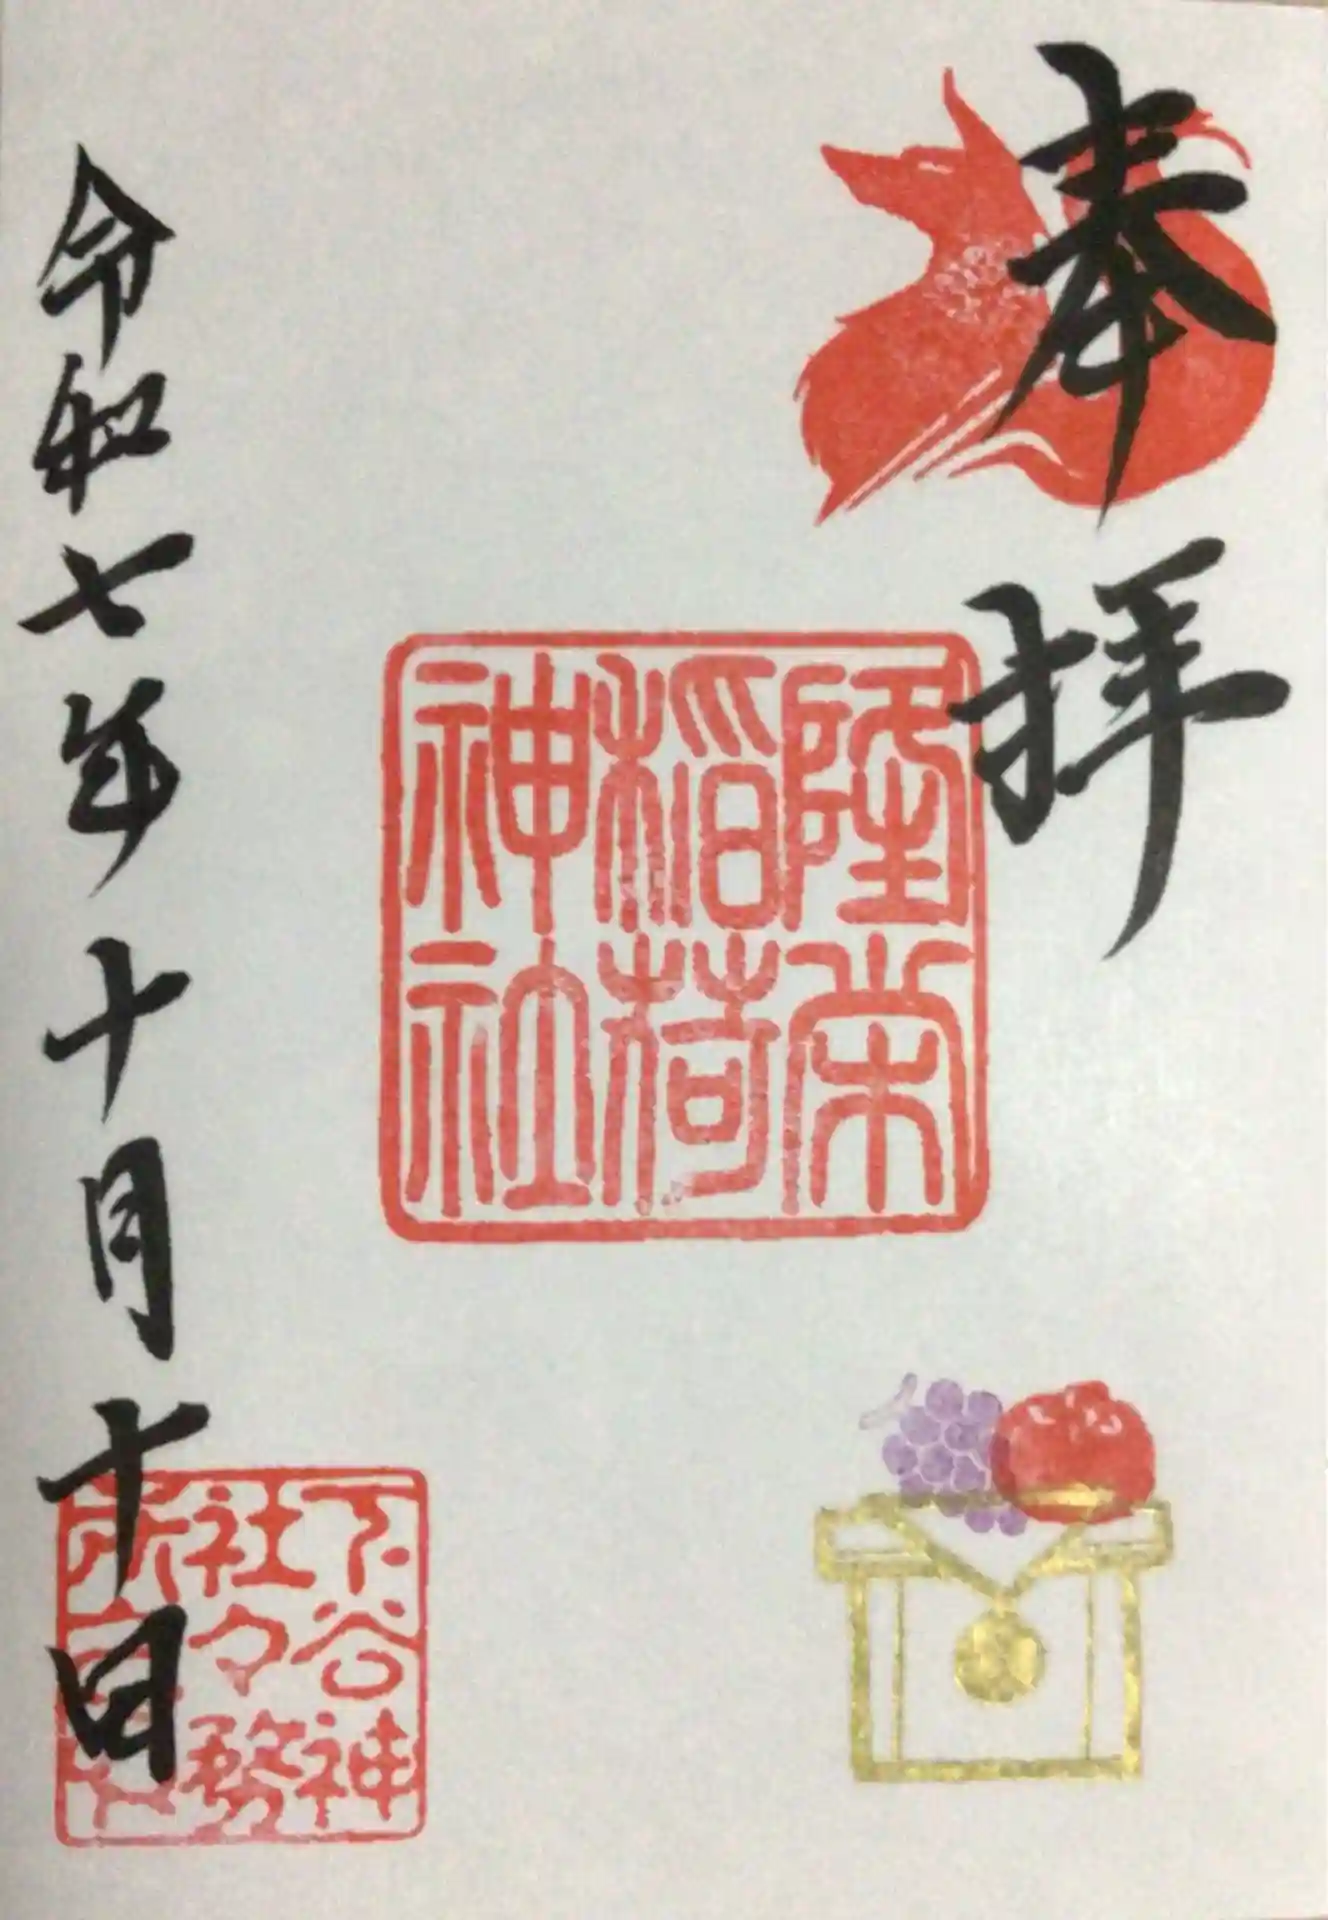 奉拝
隆栄
稲荷
神社
令和七年十月十日
下谷神
社々務
所